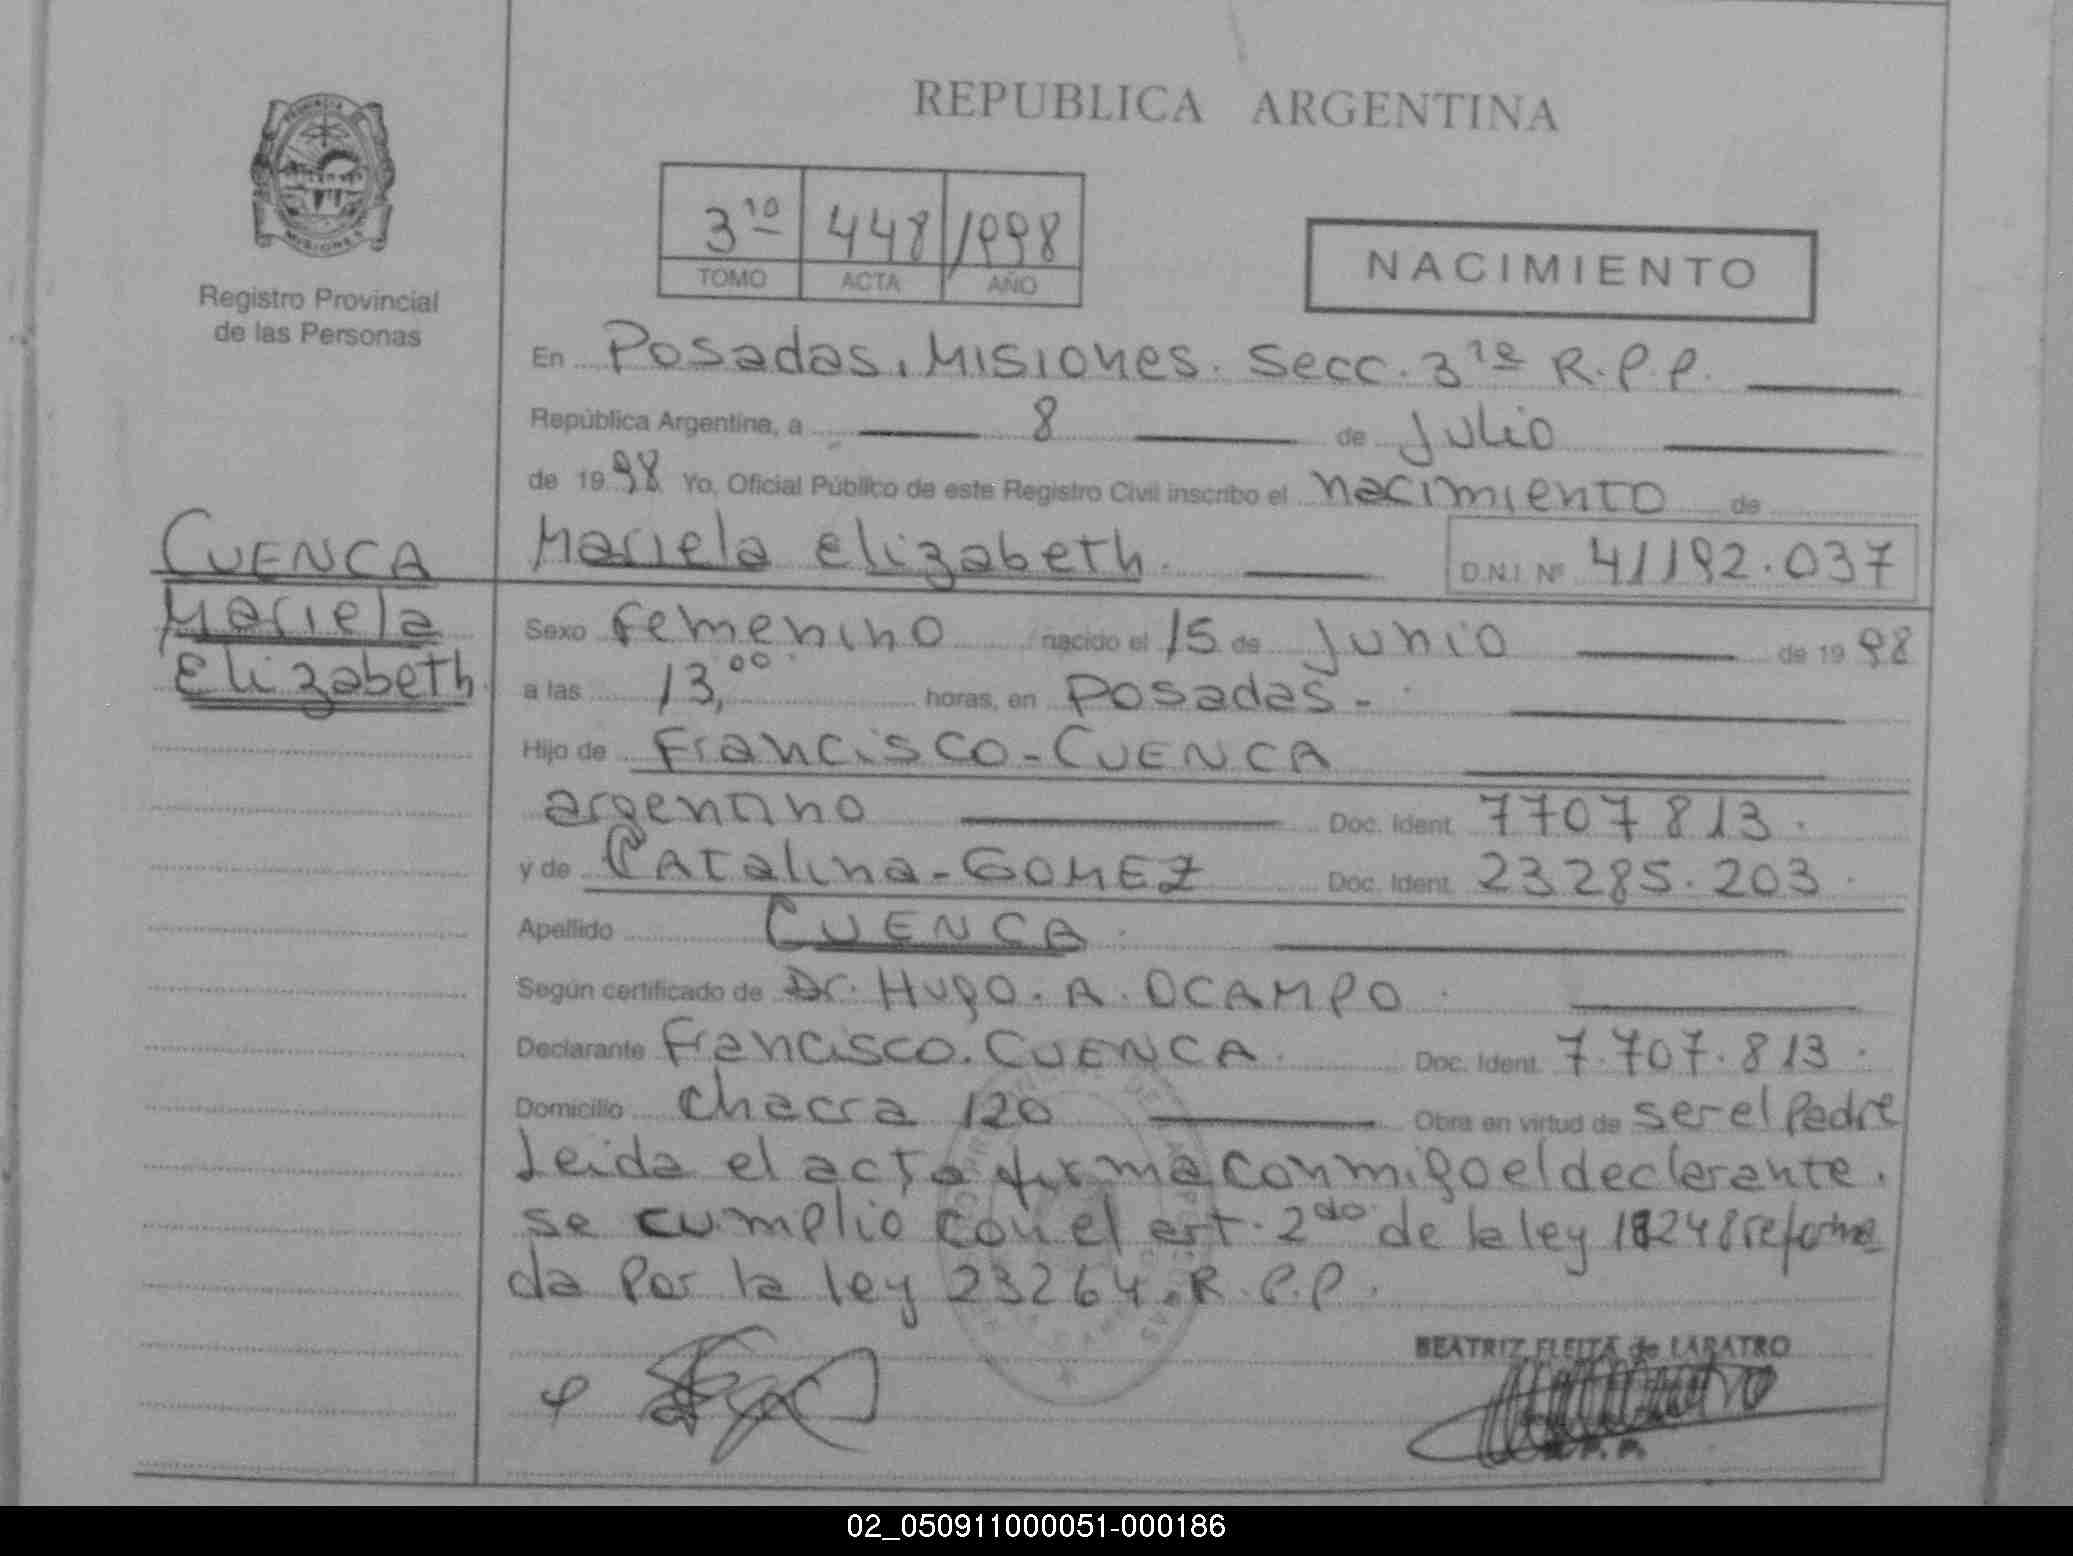 REPUBLICA ARGENTINA
3ro 448 1998
TOMO ACTA AÑO
NACIMIENTO
Registro Provincial
de las Personas
En Posadas. Misiones. Secc. 3ra R.P.P.
República Argentina, a 8 de Julio
de 1998 Yo, Oficial Público de este Registro Civil inscribo el nacimiento de
Mariela Elizabeth. D.N.I. Nº 41192.037
CUENCA
Mariela
Elizabeth.
Sexo Femenino nacido el 15 de Junio de 1998
a las 13,00 horas, en Posadas-
Hijo de Francisco-CUENCA
argentino Doc. Ident. 7707813.
y de Catalina-GOMEZ Doc. Ident. 23285.203.
Apellido CUENCA.
Según certificado de Dr. Hugo. A. OCAMPO.
Declarante Francisco. CUENCA. Doc. Ident. 7.707.813.
Domicilio Chacra 120 Obra en virtud de ser el Padre
Leida el acta firma conmigo el declarante.
se cumplio con el art. 2do de la ley 18248 reforma
da Por la ley 23264. R.P.P.
BEATRIZ FLEITA de LABATRO
02_050911000051-000186